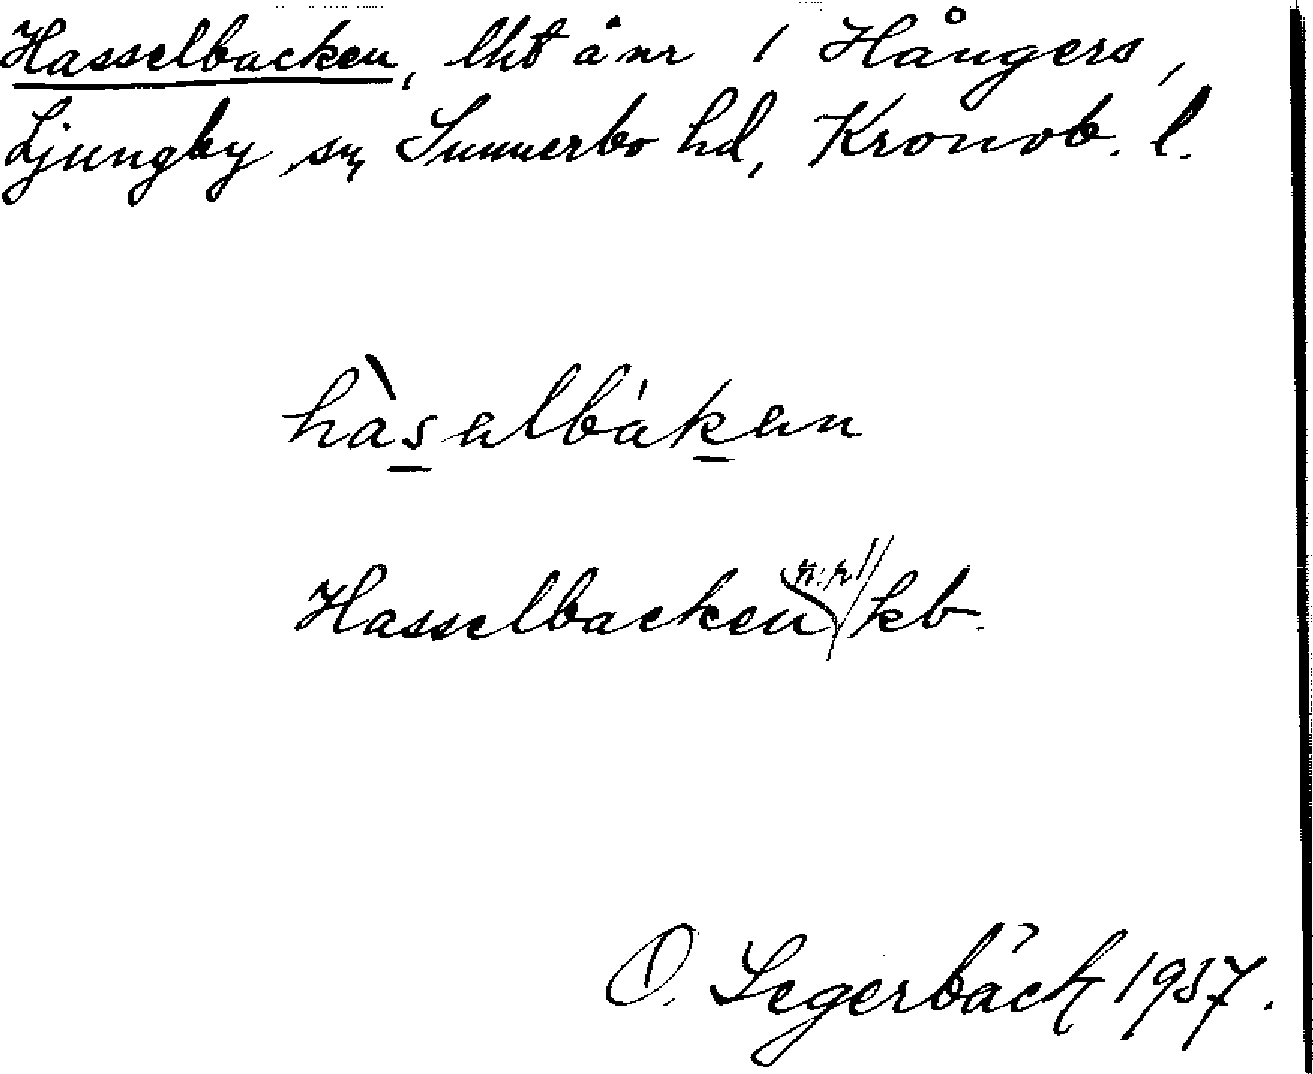 Hasselbacken, lht å nr 1 Hångers,
Ljungby sn, Sunnerbo hd, Kronob. l.
hàsalbákan
Hasselbacken n:r 1/ kb.
O. Segerbäck 1957.